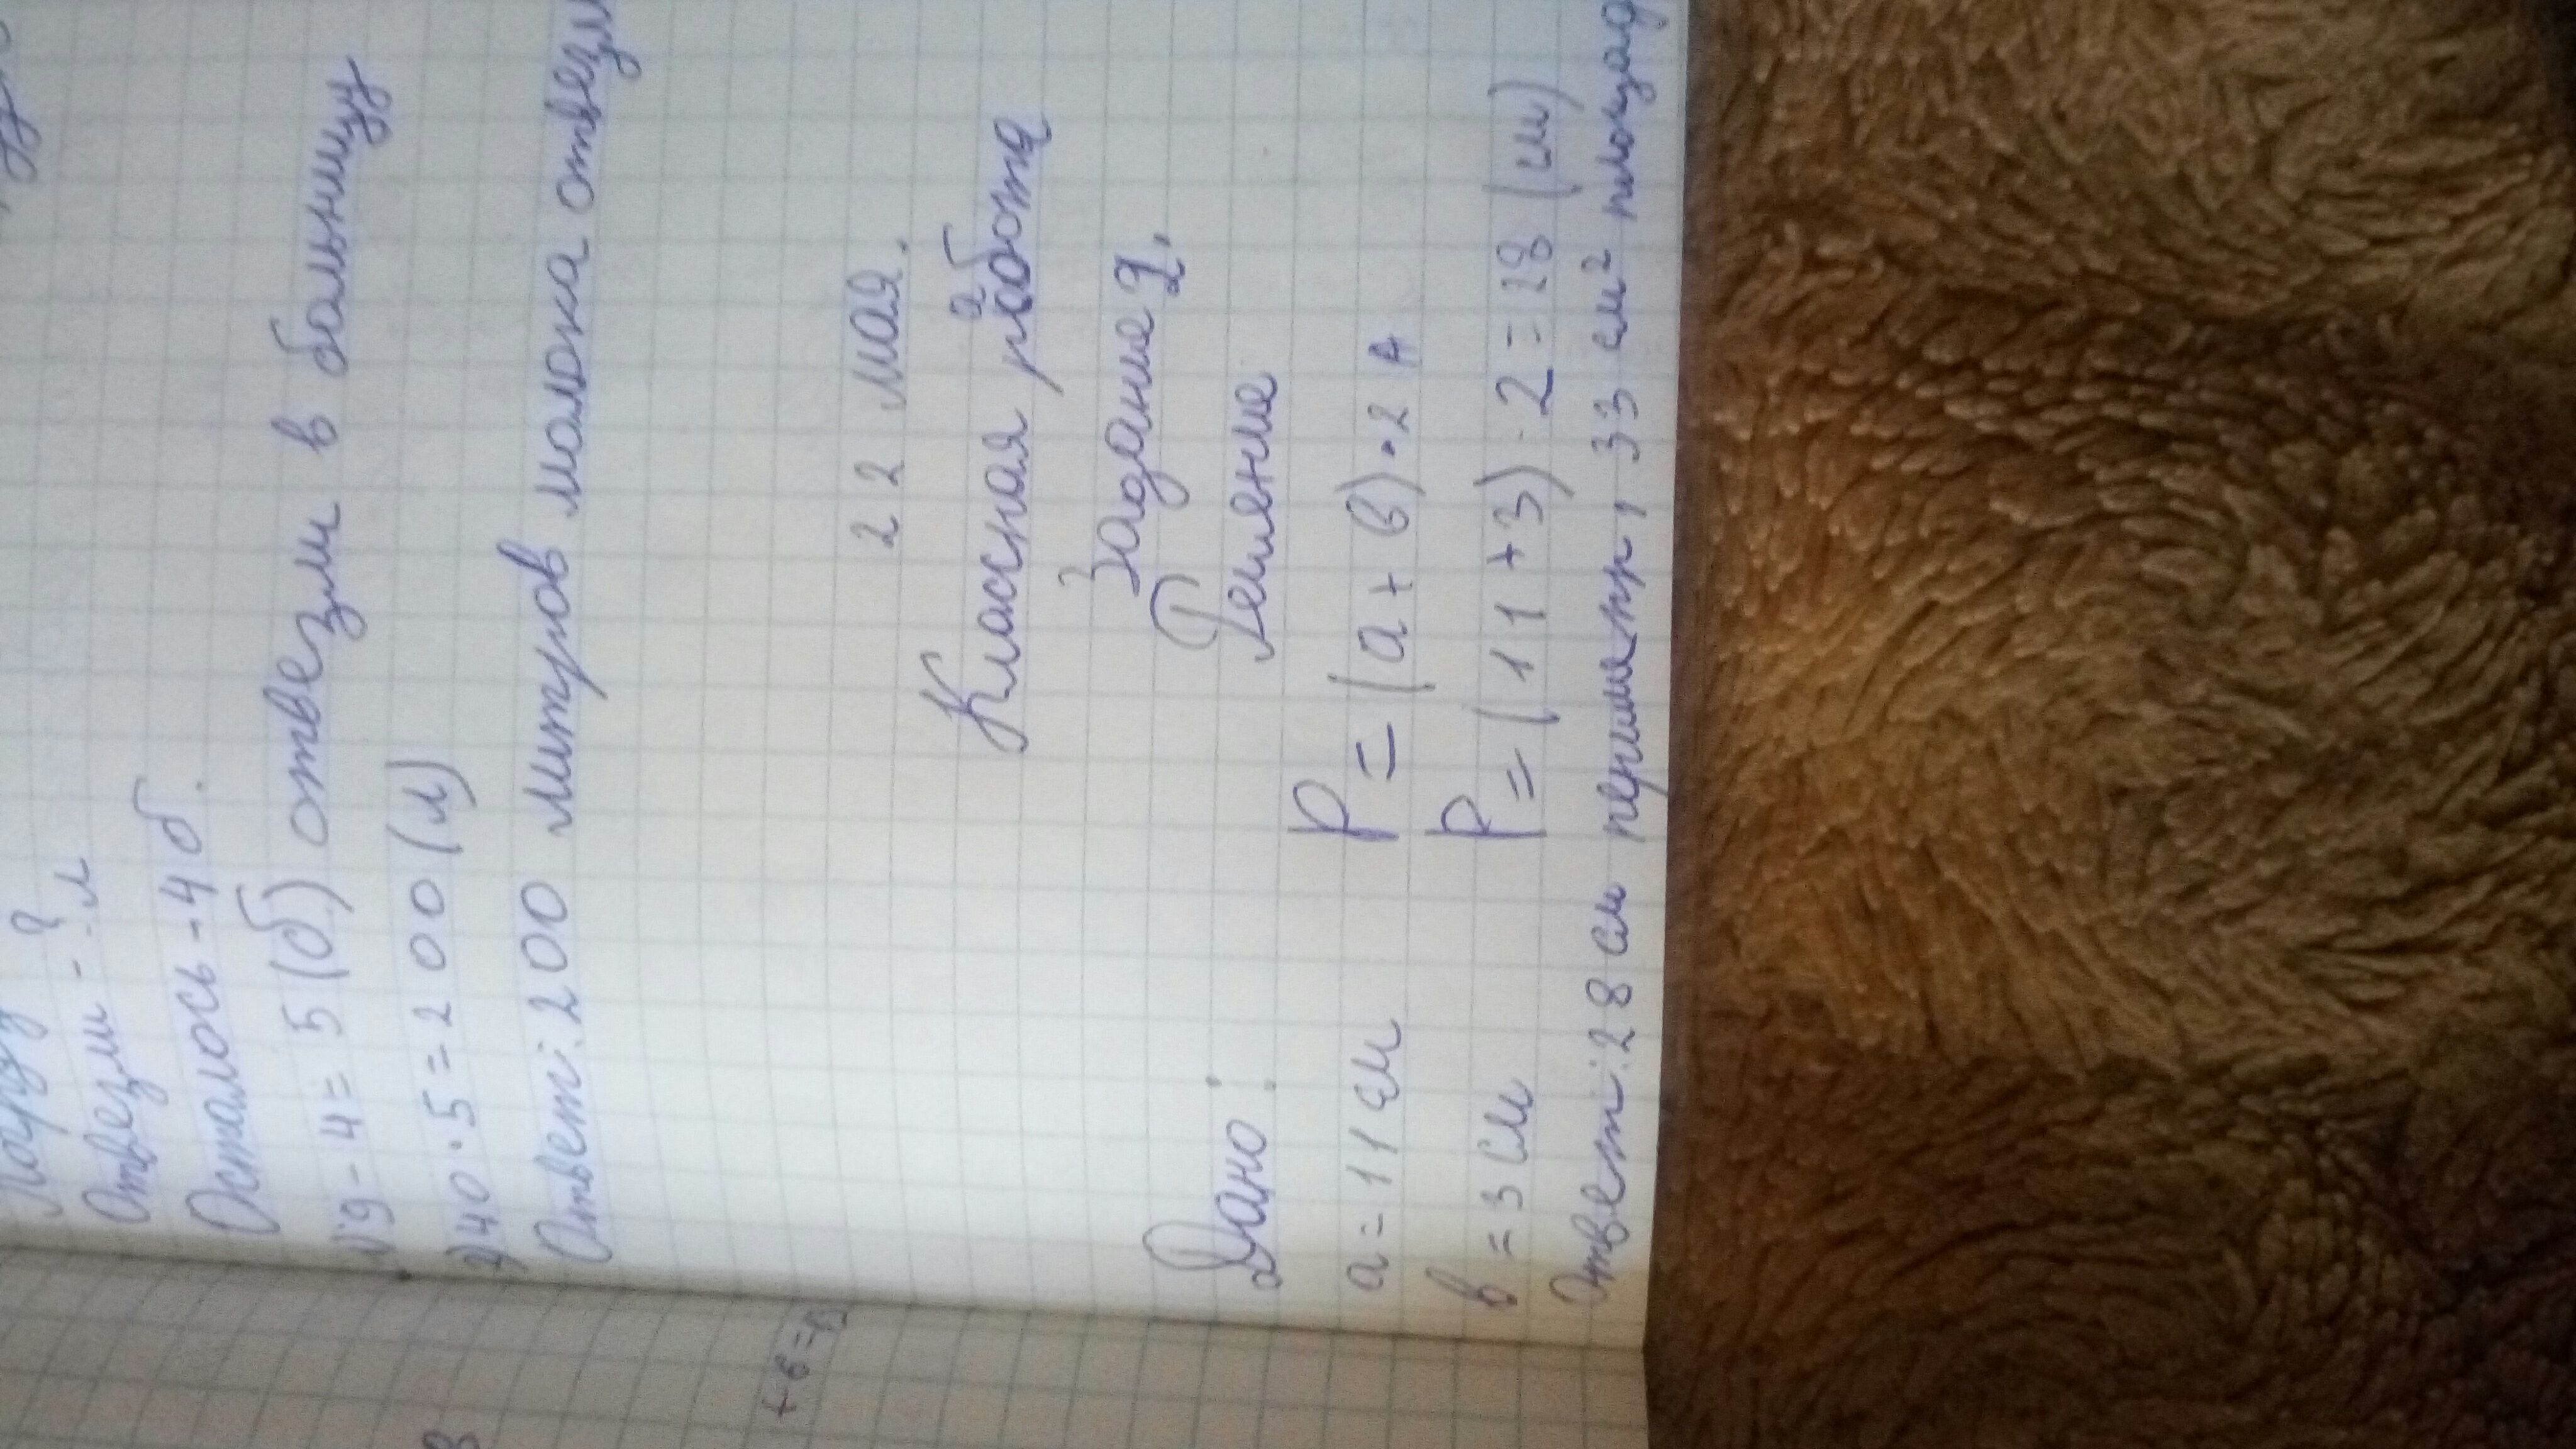 Отвезли - ? л
Осталось - 4 б.
1) 9 - 4 = 5 (б) отвезли в больницу
2) 40 · 5 = 200 (л)
Ответ: 200 литров молока отвезли
22 мая.
Классная работа
Задание 2.
Дано: Решение
a = 11 см P = (a + b) · 2
b = 3 см P = (11 + 3) · 2 = 28 (см)
Ответ: 28 см периметр, 33 см² площад
+ 6 =